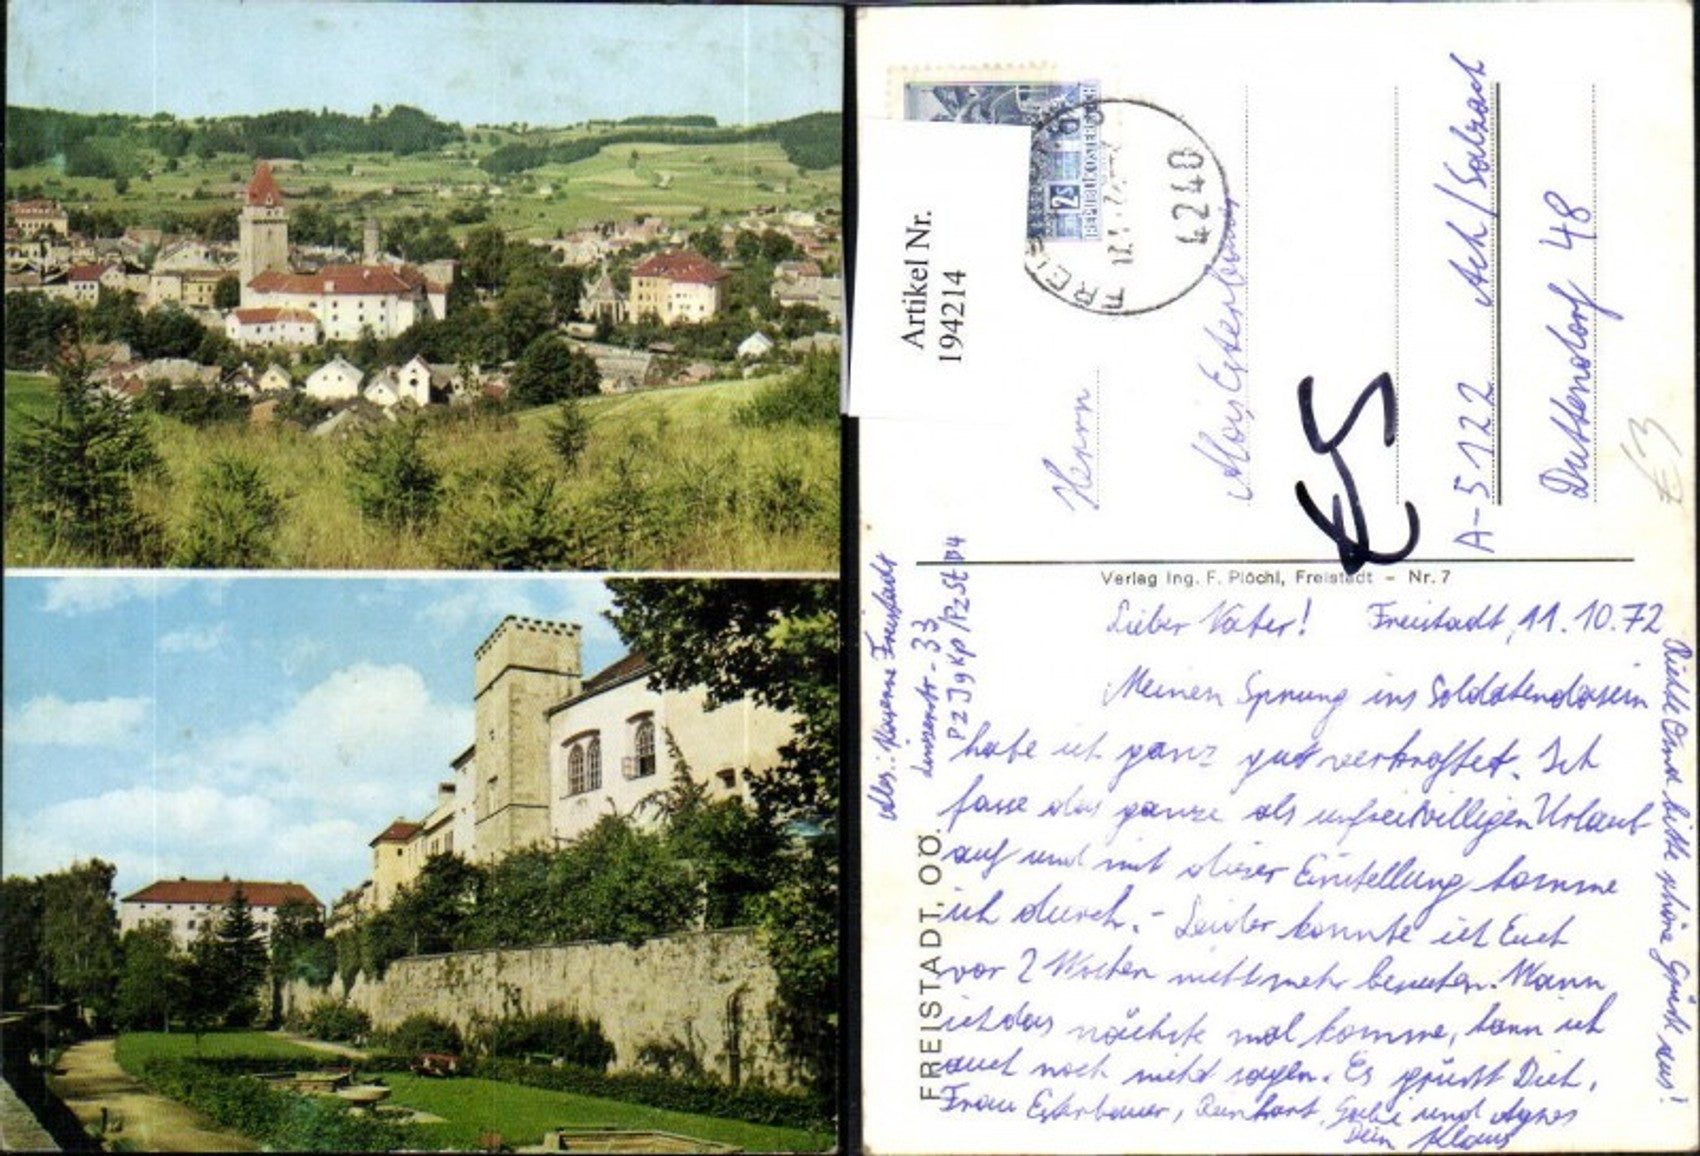 Artikel Nr.
194214
REPUBLIK ÖSTERREICH
4240
Herrn
Alois Esterbauer
A-5122 Ach/Salzach
Duttendorf 48
€5
€3
Verlag Ing. F. Plöchl, Freistadt - Nr. 7
FREISTADT, OÖ.
Lieber Vater! Freistadt, 11.10.72
Meinen Sprung ins Soldatendasein
habe ich ganz gut verkraftet. Ich
fasse das ganze als unfreiwilligen Urlaub
auf und mit dieser Einstellung komme
ich durch. - Leider konnte ich Euch
vor 2 Wochen nicht mehr besuchen. Wann
ich das nächste mal komme, kann ich
auch noch nicht sagen. Es grüsst Dich,
Frau Esterbauer, Reinhart, Gabi und Agnes
Dein Klaus
Richte Omi bitte schöne Grüsse aus!
Abs.: Kaserne Freistadt
Linzerstr. 33
PzJgKp/PzStb 4